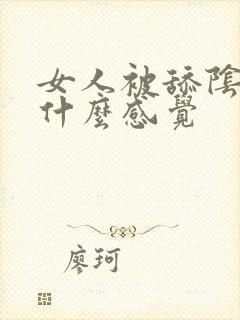 女人被舔陰
什麼感覺
廖珂